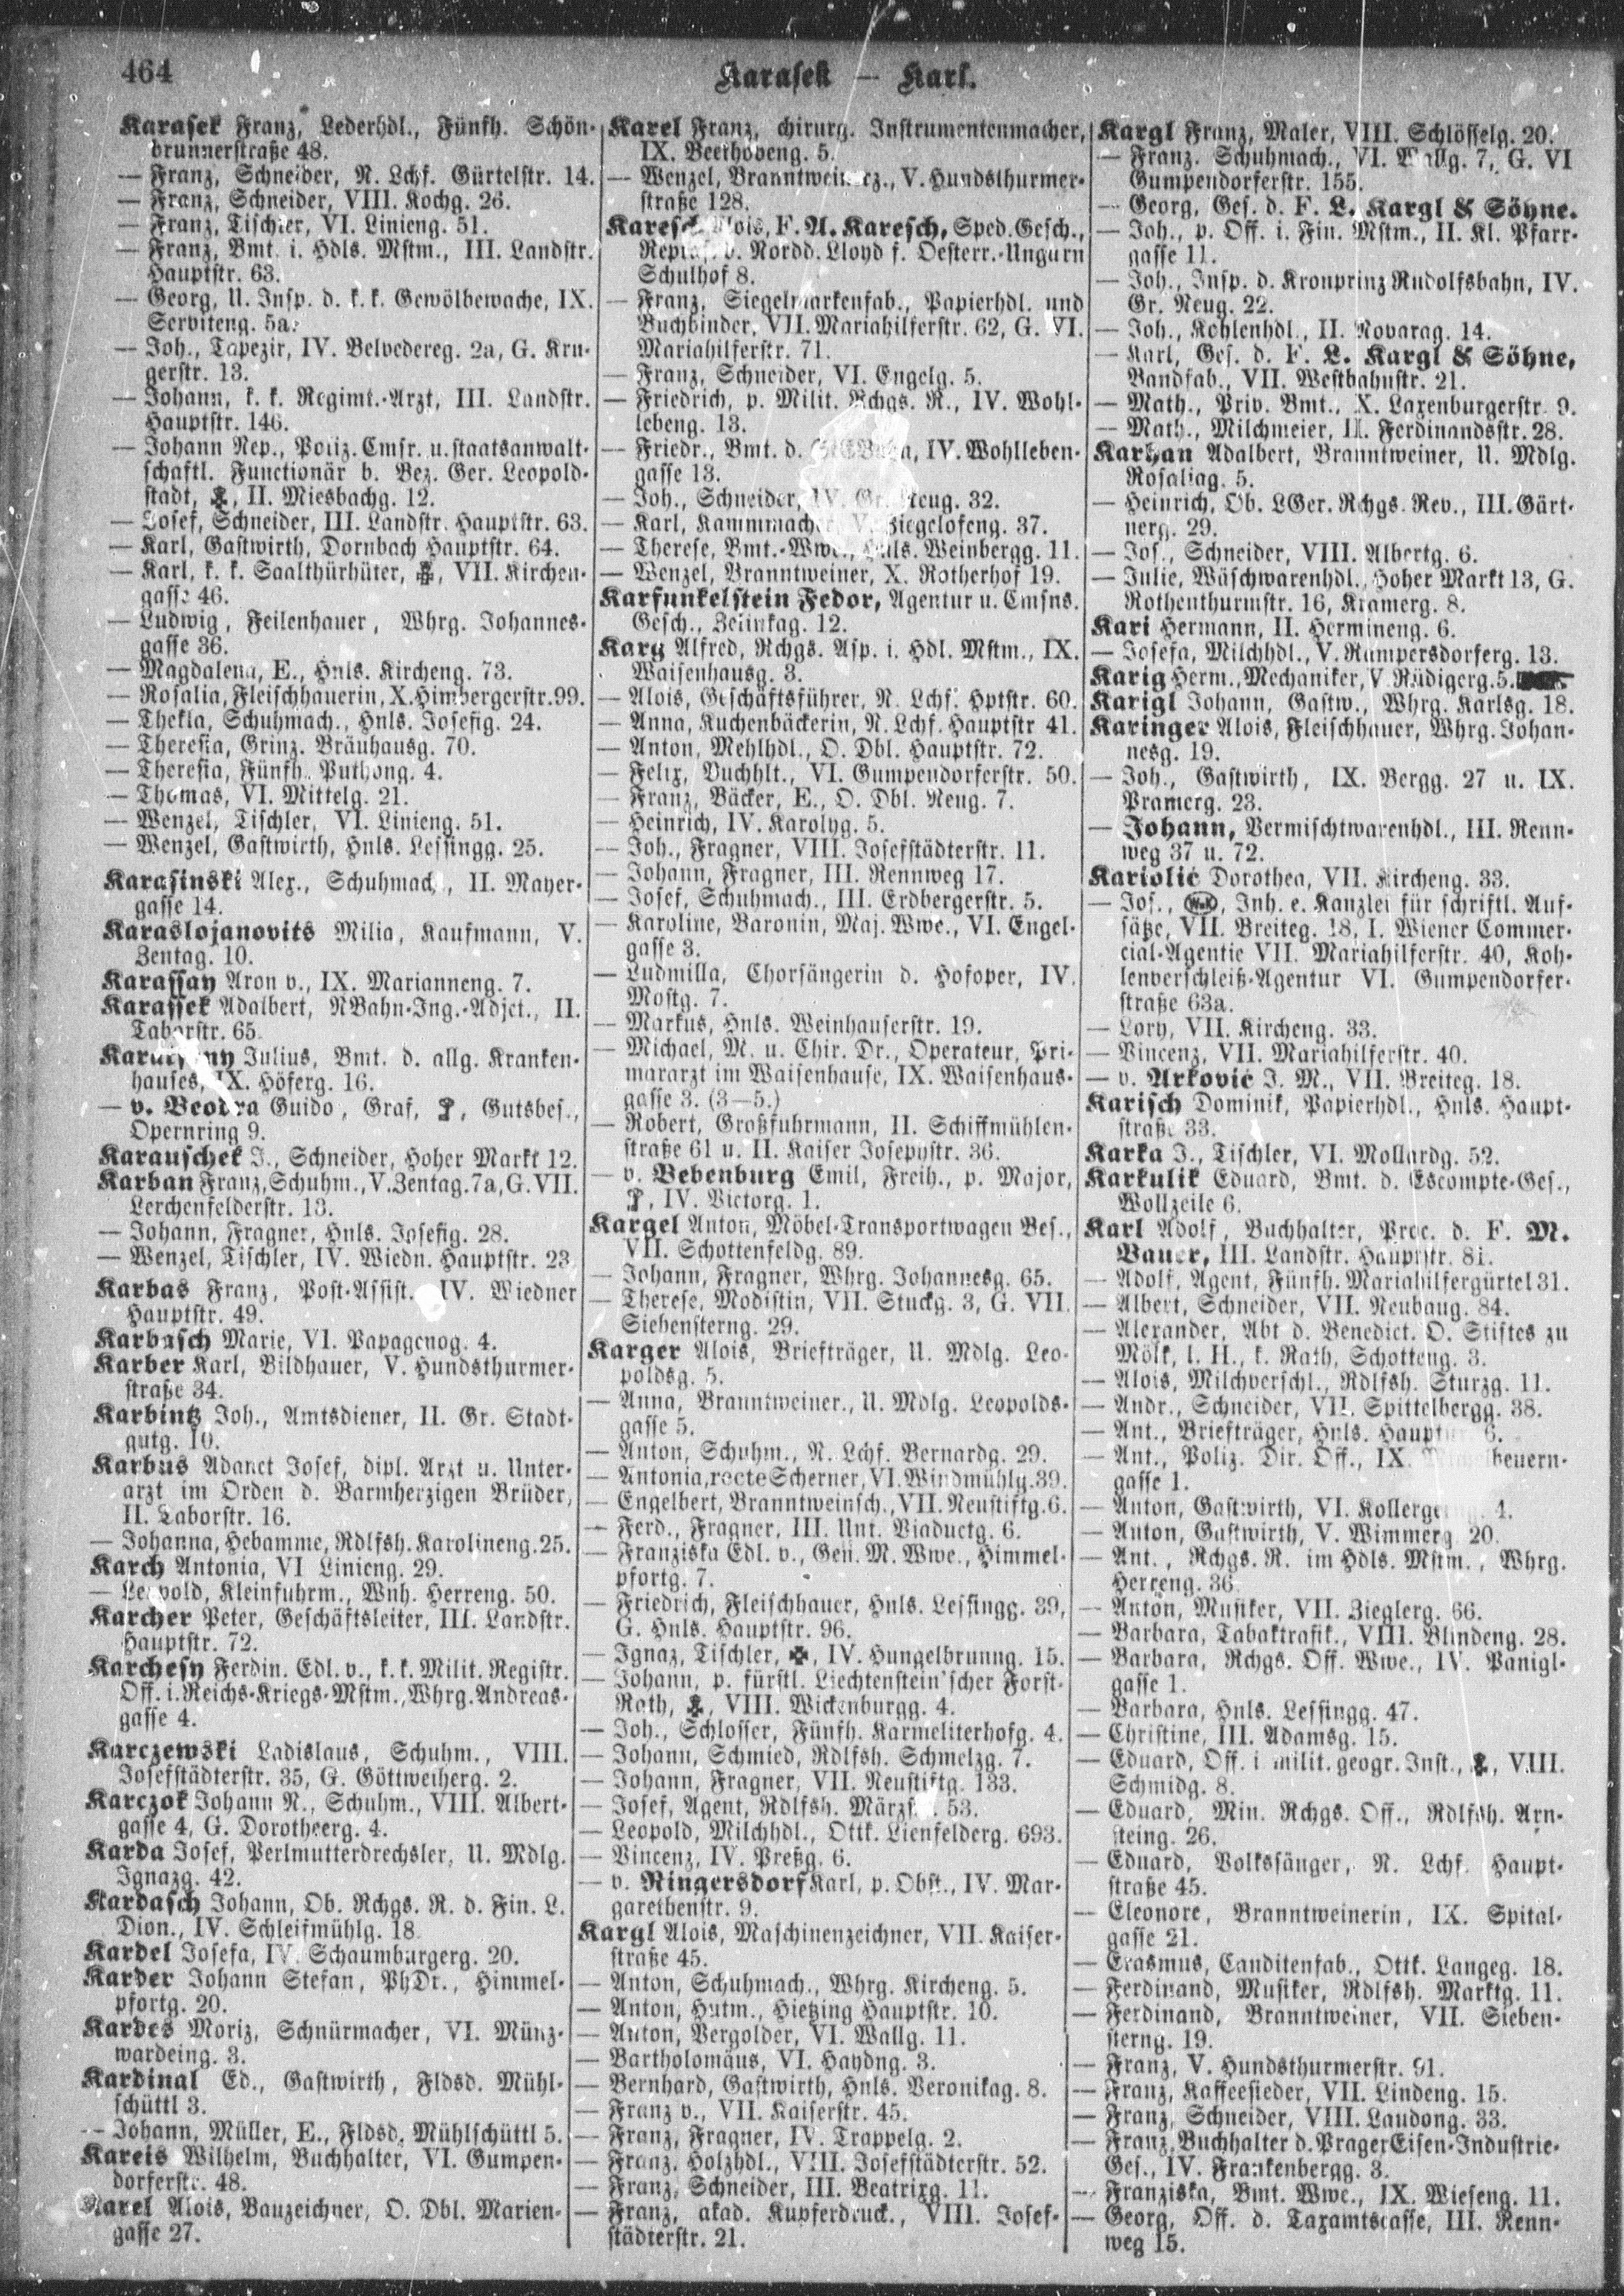 464
Karasek — Karl.
Karasek Franz, Lederhdl., Fünfh. Schön-
brunnerstraße 48.
— Franz, Schneider, N. Lchf. Gürtelstr. 14.
— Franz, Schneider, VIII. Kochg. 26.
— Franz, Tischler, VI. Linieng. 51.
— Franz, Bmt. i. Hdls. Mstm., III. Landstr.
Hauptstr. 63.
— Georg, U. Insp. d. k. k. Gewölbewache, IX.
Serviteng. 5a.
— Joh., Tapezir, IV. Belvedereg. 2a, G. Kru-
gerstr. 13.
— Johann, k. k. Regimt.-Arzt, III. Landstr.
Hauptstr. 146.
— Johann Nep., Poliz. Cmsr. u. staatsanwalt-
schaftl. Functionär b. Bez. Ger. Leopold-
stadt, II. Miesbachg. 12.
— Josef, Schneider, III. Landstr. Hauptstr. 63.
— Karl, Gastwirth, Dornbach Hauptstr. 64.
— Karl, k. k. Saalthürhüter, VII. Kirchen-
gasse 46.
— Ludwig, Feilenhauer, Whrg. Johannes-
gasse 36.
— Magdalena, E., Hnls. Kircheng. 73.
— Rosalia, Fleischhauerin, X. Himbergerstr. 99.
— Thekla, Schuhmach., Hnls. Josefig. 24.
— Theresia, Grinz. Bräuhausg. 70.
— Theresia, Fünfh. Puthong. 4.
— Thomas, VI. Mittelg. 21.
— Wenzel, Tischler, VI. Linieng. 51.
— Wenzel, Gastwirth, Hnls. Lessingg. 25.
Karasinski Alex., Schuhmach., II. Mayer-
gasse 14.
Karaslojanovits Milia, Kaufmann, V.
Zentag. 10.
Karassay Aron v., IX. Marianneng. 7.
Karassek Adalbert, NBahn-Ing.-Adjct., II.
Taborstr. 65.
Julius, Bmt. d. allg. Kranken-
hauses, IX. Höferg. 16.
— v. Guido, Graf, Gutsbes.,
Opernring 9.
Karauschek J., Schneider, Hoher Markt 12.
Karban Franz, Schuhm., V. Zentag. 7a, G. VII.
Lerchenfelderstr. 13.
— Johann, Fragner, Hnls. Josefig. 28.
— Wenzel, Tischler, IV. Wiedn. Hauptstr. 23
Karbas Franz, Post-Assist. IV. Wiedner
Hauptstr. 49.
Karbasch Marie, VI. Papagenog. 4.
Karber Karl, Bildhauer, V. Hundsthurmer-
straße 34.
Karbintz Joh., Amtsdiener, II. Gr. Stadt-
gutg. 10.
Karbus Adauct Josef, dipl. Arzt u. Unter-
arzt im Orden d. Barmherzigen Brüder,
II. Taborstr. 16.
— Johanna, Hebamme, Rdlfsh. Karolineng. 25.
Karch Antonia, VI Linieng. 29.
— Leopold, Kleinfuhrm., Wnh. Herreng. 50.
Karcher Peter, Geschäftsleiter, III. Landstr.
Hauptstr. 72.
Karchesy Ferdin. Edl. v., k. k. Milit. Registr.
Off. i. Reichs-Kriegs-Mstm., Whrg. Andreas-
gasse 4.
Karczewski Ladislaus, Schuhm., VIII.
Josefstädterstr. 35, G. Göttweiherg. 2.
Karczok Johann N., Schuhm., VIII. Albert-
gasse 4, G. Dorotheerg. 4.
Karda Josef, Perlmutterdrechsler, U. Mdlg.
Ignazg. 42.
Kardasch Johann, Ob. Rchgs. R. d. Fin. L.
Dion., IV. Schleifmühlg. 18.
Kardel Josefa, IV. Schaumburgerg. 20.
Karder Johann Stefan, PhDr., Himmel-
pfortg. 20.
Kardes Moriz, Schnürmacher, VI. Münz-
wardeing. 3.
Kardinal Ed., Gastwirth, Fldsd. Mühl-
schüttl 3.
— Johann, Müller, E., Fldsd. Mühlschüttl 5.
Kareis Wilhelm, Buchhalter, VI. Gumpen-
dorferstr. 48.
Karel Alois, Bauzeichner, O. Dbl. Marien-
gasse 27.
Karel Franz, chirurg. Instrumentenmacher,
IX. Beethoveng. 5.
— Wenzel, V. Hundsthurmer-
straße 128.
Karesch Alois, F. A. Karesch, Sped. Gesch.,
v. Nordd. Lloyd f. Oesterr.-Ungarn
Schulhof 8.
— Franz, Siegelmarkenfab., Papierhdl. und
Buchbinder, VII. Mariahilferstr. 62, G. VI.
Mariahilferstr. 71.
— Franz, Schneider, VI. Engelg. 5.
— Friedrich, p. Milit. Rchgs. R., IV. Wohl-
lebeng. 13.
— Friedr., Bmt. d. IV. Wohlleben-
gasse 13.
— Joh., Schneider, IV. Gr. Neug. 32.
— Karl, Kammmacher, V. Ziegelofeng. 37.
— Therese, Bmt.-Wwe., Hnls. Weinbergg. 11.
— Wenzel, Branntweiner, X. Rotherhof 19.
Karfunkelstein Fedor, Agentur u. Cmsns.
Gesch., Zelinkag. 12.
Karg Alfred, Rchgs. Asp. i. Hdl. Mstm., IX.
Waisenhausg. 3.
— Alois, Geschäftsführer, N. Lchf. Hptstr. 60.
— Anna, Kuchenbäckerin, N. Lchf. Hauptstr 41.
— Anton, Mehlhdl., O. Dbl. Hauptstr. 72.
— Felix, Buchhlt., VI. Gumpendorferstr. 50.
— Franz, Bäcker, E., O. Dbl. Neug. 7.
— Heinrich, IV. Karolyg. 5.
— Joh., Fragner, VIII. Josefstädterstr. 11.
— Johann, Fragner, III. Rennweg 17.
— Josef, Schuhmach., III. Erdbergerstr. 5.
— Karoline, Baronin, Maj. Wwe., VI. Engel-
gasse 3.
— Ludmilla, Chorsängerin d. Hofoper, IV.
Mostg. 7.
— Markus, Hnls. Weinhauserstr. 19.
— Michael, M. u. Chir. Dr., Operateur, Pri-
mararzt im Waisenhause, IX. Waisenhaus-
gasse 3. (3—5.)
— Robert, Großfuhrmann, II. Schiffmühlen-
straße 61 u. II. Kaiser Josephstr. 36.
— v. Bebenburg Emil, Freih., p. Major,
IV. Victorg. 1.
Kargel Anton, Möbel-Transportwagen Bes.,
VII. Schottenfeldg. 89.
— Johann, Fragner, Whrg. Johannesg. 65.
— Therese, Modistin, VII. Stuckg. 3, G. VII.
Siebensterng. 29.
Karger Alois, Briefträger, U. Mdlg. Leo-
poldsg. 5.
— Anna, Branntweiner., U. Mdlg. Leopolds-
gasse 5.
— Anton, Schuhm., N. Lchf. Bernardg. 29.
— Antonia, recte Scherner, VI. Windmühlg. 39.
— Engelbert, Branntweinsch., VII. Neustiftg. 6.
— Ferd., Fragner, III. Unt. Viaductg. 6.
— Franziska Edl. v., Gen. M. Wwe., Himmel-
pfortg. 7.
— Friedrich, Fleischhauer, Hnls. Lessingg. 39,
G. Hnls. Hauptstr. 96.
— Ignaz, Tischler, IV. Hungelbrunng. 15.
— Johann, p. fürstl. Liechtenstein'scher Forst-
Rath, VIII. Wickenburgg. 4.
— Joh., Schlosser, Fünfh. Karmeliterhofg. 4.
— Johann, Schmied, Rdlfsh. Schmelzg. 7.
— Johann, Fragner, VII. Neustiftg. 133.
— Josef, Agent, Rdlfsh. 53.
— Leopold, Milchhdl., Ottk. Lienfelderg. 693.
— Vincenz, IV. Preßg. 6.
— v. Ringersdorf Karl, p. Obst., IV. Mar-
garethenstr. 9.
Kargl Alois, Maschinenzeichner, VII. Kaiser-
straße 45.
— Anton, Schuhmach., Whrg. Kircheng. 5.
— Anton, Hutm., Hietzing Hauptstr. 10.
— Anton, Vergolder, VI. Wallg. 11.
— Bartholomäus, VI. Haydng. 3.
— Bernhard, Gastwirth, Hnls. Veronikag. 8.
— Franz v., VII. Kaiserstr. 45.
— Franz, Fragner, IV. Trappelg. 2.
— Franz, Holzhdl., VIII. Josefstädterstr. 52.
— Franz, Schneider, III. Beatrixg. 11.
— Franz, akad. Kupferdruck., VIII. Josef-
städterstr. 21.
Kargl Franz, Maler, VIII. Schlösselg. 20.
— Franz. Schuhmach., VI. Wallg. 7, G. VI
Gumpendorferstr. 155.
— Georg, Ges. d. F. L. Kargl & Söhne.
— Joh., p. Off. i. Fin. Mstm., II. Kl. Pfarr-
gasse 11.
— Joh., Insp. d. Kronprinz Rudolfsbahn, IV.
Gr. Neug. 22.
— Joh., Kohlenhdl., II. Novarag. 14.
— Karl, Ges. d. F. L. Kargl & Söhne,
Bandfab., VII. Westbahnstr. 21.
— Math., Priv. Bmt., X. Laxenburgerstr. 9.
— Math., Milchmeier, II. Ferdinandsstr. 28.
Karhan Adalbert, Branntweiner, U. Mdlg.
Rosaliag. 5.
— Heinrich, Ob. LGer. Rchgs. Rev., III. Gärt-
nerg. 29.
— Jos., Schneider, VIII. Albertg. 6.
— Julie, Wäschwarenhdl., Hoher Markt 13, G.
Rothenthurmstr. 16, Kramerg. 8.
Kari Hermann, II. Hermineng. 6.
— Josefa, Milchhdl., V. Rampersdorferg. 13.
Karig Herm., Mechaniker, V. Rüdigerg. 5.
Karigl Johann, Gastw., Whrg. Karlsg. 18.
Karinger Alois, Fleischhauer, Whrg. Johan-
nesg. 19.
— Joh., Gastwirth, IX. Bergg. 27 u. IX.
Pramerg. 23.
— Johann, Vermischtwarenhdl., III. Renn-
weg 37 u. 72.
Kariolić Dorothea, VII. Kircheng. 33.
— Jos., Inh. e. Kanzlei für schriftl. Auf-
sätze, VII. Breiteg. 18, I. Wiener Commer-
cial-Agentie VII. Mariahilferstr. 40, Koh-
lenverschleiß-Agentur VI. Gumpendorfer-
straße 63a.
— Lory, VII. Kircheng. 33.
— Vincenz, VII. Mariahilferstr. 40.
— v. Arković J. M., VII. Breiteg. 18.
Karisch Dominik, Papierhdl., Hnls. Haupt-
straße 33.
Karka J., Tischler, VI. Mollardg. 52.
Karkulik Eduard, Bmt. d. Escompte-Ges.,
Wollzeile 6.
Karl Adolf, Buchhalter, Proc. d. F. M.
Bauer, III. Landstr. Hauptstr. 81.
— Adolf, Agent, Fünfh. Mariahilfergürtel 31.
— Albert, Schneider, VII. Neubaug. 84.
— Alexander, Abt d. Benedict. O. Stiftes zu
Mölk, l. H., k. Rath, Schotteng. 3.
— Alois, Milchverschl., Rdlfsh. Sturzg. 11.
— Andr., Schneider, VII. Spittelbergg. 38.
— Ant., Briefträger, Hnls. 6.
— Ant., Poliz. Dir. Off., IX.
gasse 1.
— Anton, Gastwirth, VI. 4.
— Anton, Gastwirth, V. Wimmerg. 20.
— Ant., Rchgs. R. im Hdls. Mstm., Whrg.
Herreng. 36.
— Anton, Musiker, VII. Zieglerg. 66.
— Barbara, Tabaktrafik., VIII. Blindeng. 28.
— Barbara, Rchgs. Off. Wwe., IV. Panigl-
gasse 1.
— Barbara, Hnls. Lessingg. 47.
— Christine, III. Adamsg. 15.
— Eduard, Off. i. milit. geogr. Inst., VIII.
Schmidg. 8.
— Eduard, Min. Rchgs. Off., Rdlfsh. Arn-
steing. 26.
— Eduard, Volkssänger, N. Lchf. Haupt-
straße 45.
— Eleonore, Branntweinerin, IX. Spital-
gasse 21.
— Erasmus, Canditenfab., Ottk. Langeg. 18.
— Ferdinand, Musiker, Rdlfsh. Marktg. 11.
— Ferdinand, Branntweiner, VII. Sieben-
sterng. 19.
— Franz, V. Hundsthurmerstr. 91.
— Franz, Kaffeesieder, VII. Lindeng. 15.
— Franz, Schneider, VIII. Laudong. 33.
— Franz, Buchhalter d. Prager Eisen-Industrie-
Ges., IV. Frankenbergg. 3.
— Franziska, Bmt. Wwe., IX. Wieseng. 11.
— Georg, Off. d. Taxamtscasse, III. Renn-
weg 15.